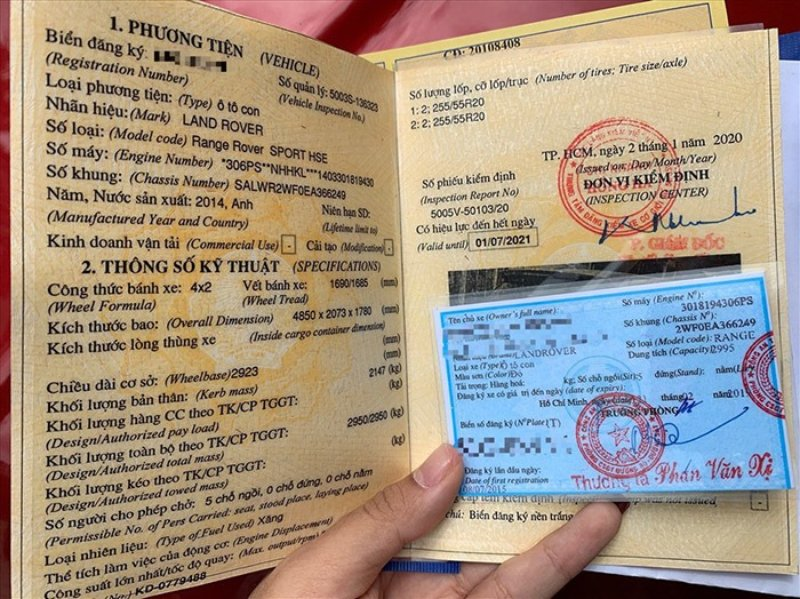 1. PHƯƠNG TIỆN (VEHICLE)
Biển đăng ký:
(Registration Number)
Số quản lý: 5003S-136323
(Vehicle Inspection No.)
Loại phương tiện: (Type) ô tô con
Nhãn hiệu: (Mark) LAND ROVER
Số loại: (Model code) Range Rover SPORT HSE
Số máy: (Engine Number) *306PS**NHHKL***1403301819430
Số khung: (Chassis Number) SALWR2WF0EA366249
Năm, Nước sản xuất: 2014, Anh
(Manufactured Year and Country)
Niên hạn SD:
(Lifetime limit to)
Kinh doanh vận tải (Commercial Use) - Cải tạo (Modification) -
2. THÔNG SỐ KỸ THUẬT (SPECIFICATIONS)
Công thức bánh xe: 4x2
(Wheel Formula)
Vết bánh xe: 1690/1685 (mm)
(Wheel Tread)
Kích thước bao: (Overall Dimension) 4850 x 2073 x 1780 (mm)
Kích thước lòng thùng xe (Inside cargo container dimension)
(mm)
Chiều dài cơ sở: (Wheelbase) 2923 (mm)
Khối lượng bản thân: (Kerb mass) 2147 (kg)
Khối lượng hàng CC theo TK/CP TGGT: (kg)
(Design/Authorized pay load)
Khối lượng toàn bộ theo TK/CP TGGT: 2950/2950 (kg)
(Design/Authorized total mass)
Khối lượng kéo theo TK/CP TGGT: (kg)
(Design/Authorized towed mass)
Số người cho phép chở: 5 chỗ ngồi, 0 chỗ đứng, 0 chỗ nằm
(Permissible No. of Pers Carried: seat, stood place, laying place)
Loại nhiên liệu: (Type of Fuel Used) Xăng
Thể tích làm việc của động cơ: (Engine Displacement)
Công suất lớn nhất/tốc độ quay: (Max. output/rpm)
KD-0779488
CD: 20108408
Số lượng lốp, cỡ lốp/trục (Number of tires; Tire size/axle)
1: 2; 255/55R20
2: 2; 255/55R20
TP. HCM, ngày 2 tháng 1 năm 2020
(Issued on: Day/Month/Year)
ĐƠN VỊ KIỂM ĐỊNH
(INSPECTION CENTER)
Số phiếu kiểm định
(Inspection Report No)
5005V-50103/20
Có hiệu lực đến hết ngày
(Valid until) 01/07/2021
P. GIÁM ĐỐC
Tên chủ xe (Owner's full name):
Số máy (Engine N°):
3018194306PS
Số khung (Chassis N°):
2WF0EA366249
LANDROVER
Số loại (Model code): RANGE
Loại xe (Type) Ô tô con
Dung tích (Capacity) 2995
Màu sơn (Color) Đỏ
Tải trọng: Hàng hoá: kg; Số chỗ ngồi (Sit): 5 đứng (Stand):
Đăng ký xe có giá trị đến ngày (date of expiry):
Hồ Chí Minh, ngày tháng 02 năm 201
TRƯỞNG PHÒNG
Biển số đăng ký (N° Plate) (T)
Đăng ký lần đầu ngày:
Date of first registration
08/07/2015
Thượng tá Phan Văn Xị
was not issued
chú: Biển đăng ký nền trắng